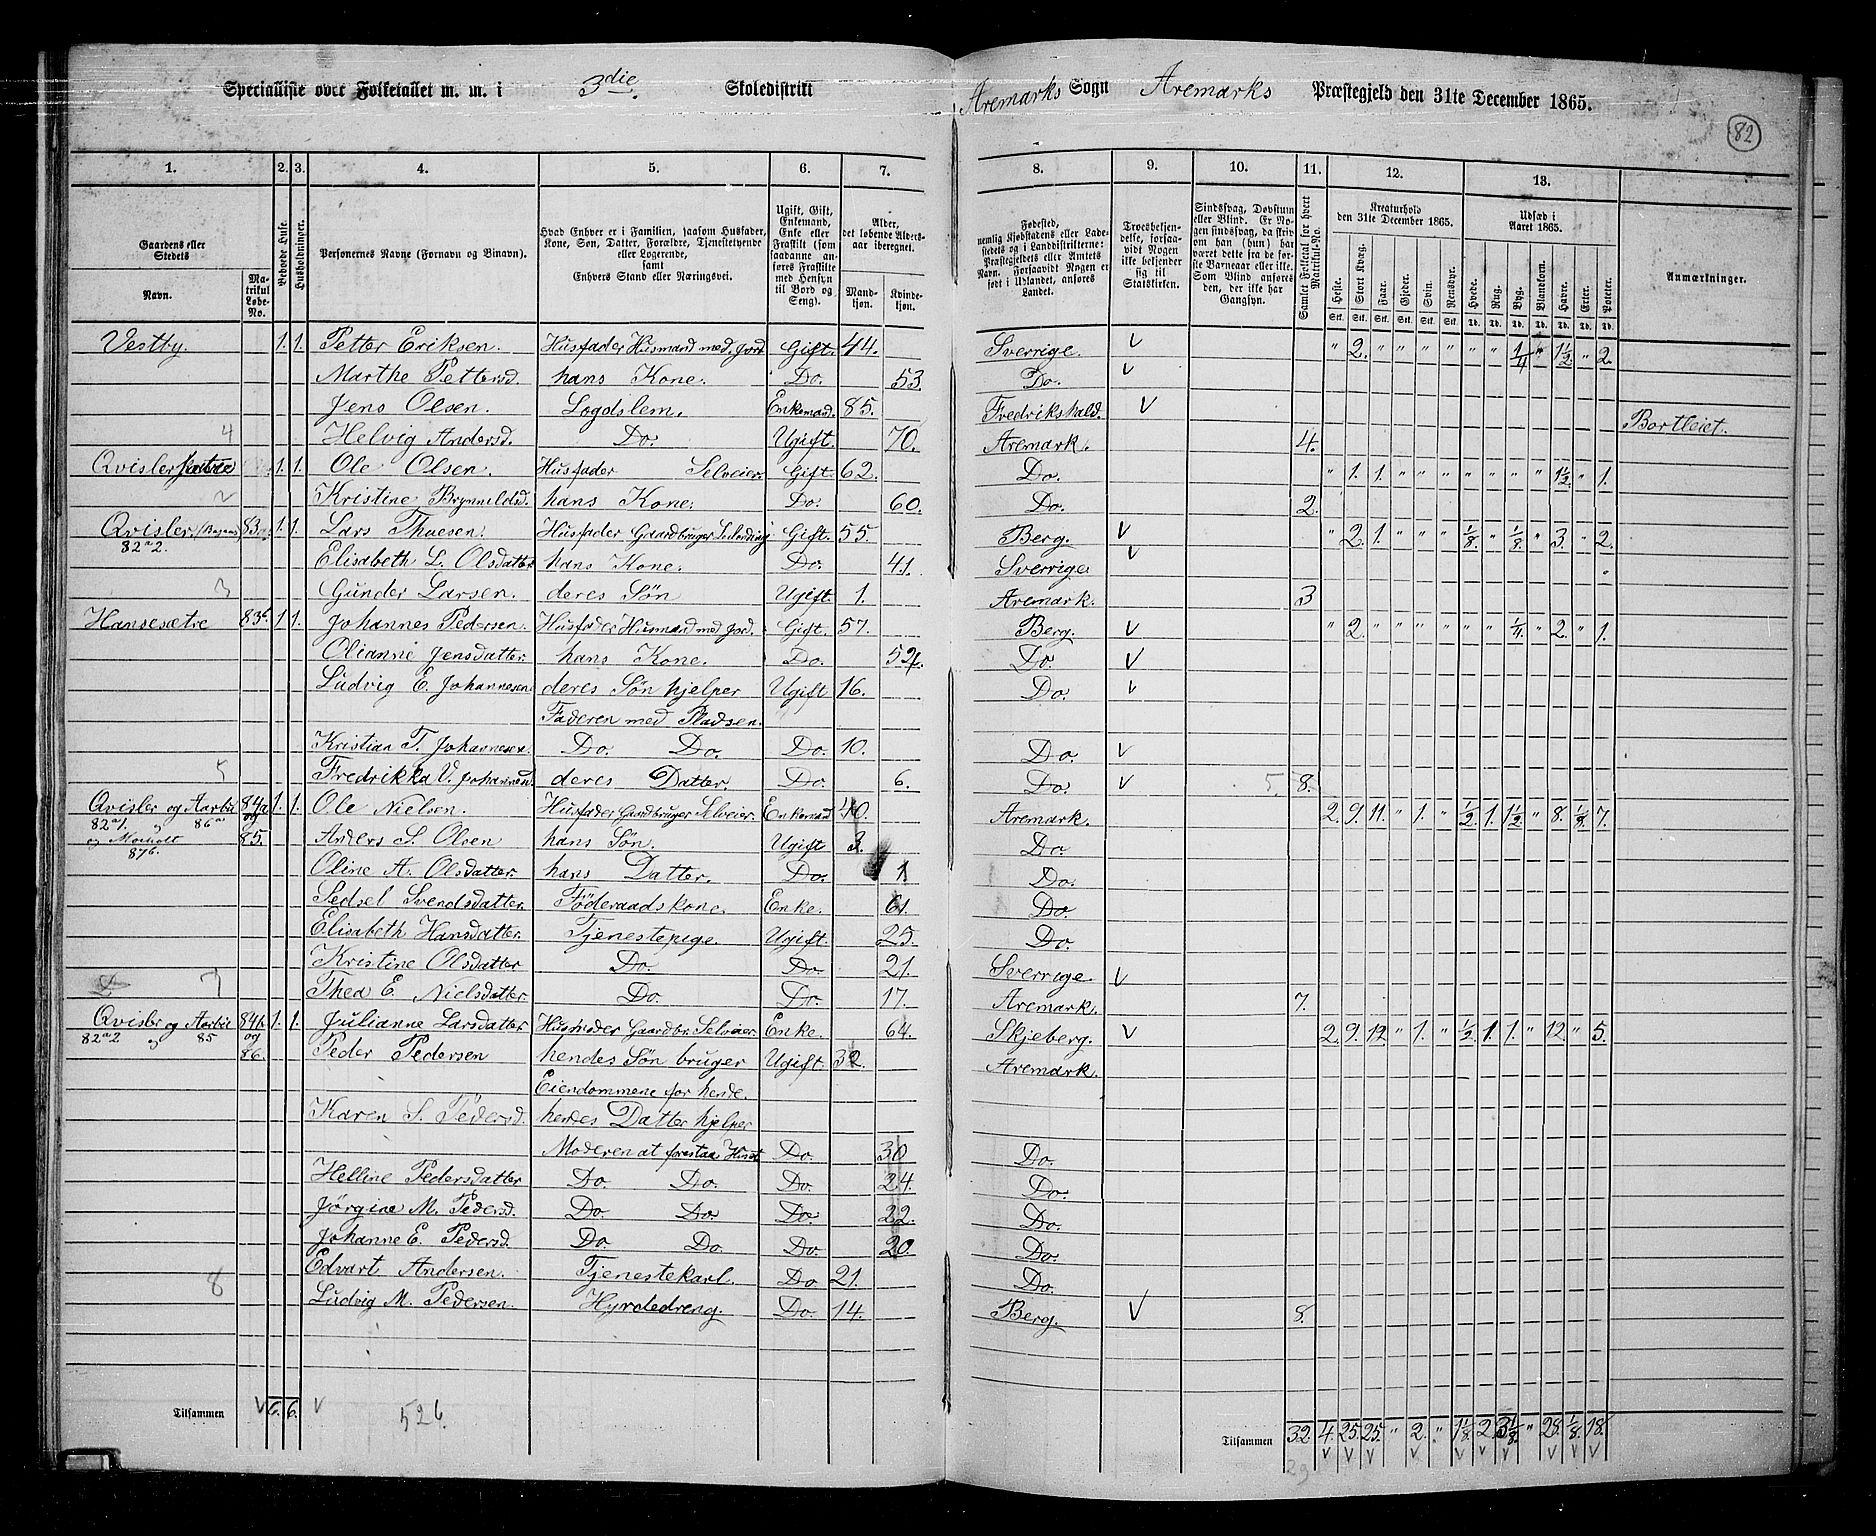 Specialliste over Folketallet m. m. i 3die Skoledistrikt Aremarks Sogn Aremarks Præstegjeld den 31te December 1865.
82
1. 2. 3. 4. 5. 6. 7. 8. 9. 10. 11. 12. 13.
Gaardens eller Stedets
Navn.
Matrikul Løbe-No.
Beboede Huse.
Husholdninger.
Personernes Navne (Fornavn og Binavn).
Hvad Enhver er i Familien, saasom Husfader, Kone, Søn, Datter, Forældre, Tjenestetyende eller Logerende, samt Enhvers Stand eller Næringsvei.
Ugift, Gift, Enkemand, Enke eller Fraskilt (som saadanne anføres Fraskilte med Hensyn til Bord og Seng).
Alder, det løbende Alders-aar iberegnet.
Mandkjøn. Kvindekjøn.
Fødested, nemlig Kjøbstadens eller Ladestedets og i Landdistrikterne: Præstegjeldets eller Amtets Navn. Forsaavidt Nogen er født i Udlandet, anføres Landet.
Troesbekjendelse, forsaavidt Nogen ikke bekjender sig til Statskirken.
Sindssvag, Døvstum eller Blind. Er Nogen sindssvag, da skrives om han (hun) har været dette fra de første Barneaar eller ikke. Som Blind anføres den, der ikke har Gangsyn.
Samlet Folketal for hvert Matrikul-No.
Kreaturhold den 31te December 1865.
Heste. Stort Kvæg. Faar. Gjeder. Svin. Rensdyr.
Udsæd i Aaret 1865.
Hvede. Rug. Byg. Blandkorn. Havre. Erter. Poteter.
Anmærkninger.
Vestby 1. 1. Petter Eriksen. Husfader Husmand med Jord Gift. 44. Sverrige. v " 2. " " " " " " 1/4 " 1 1/2 " 2.
Marthe Pettersd. hans Kone. Do. 53. Do. v
Jens Olsen. Logdslem. Enkemand. 85. Fredrikshald. v
4 Helvig Andersd. Do. Ugift. 70. Aremark. 4. Bortleiet.
Qvisler 1. 1. Ole Olsen. Husfader Selveier. Gift. 62. Do. " 1. 1. " " " " " " " 1 1/2 " 1.
2 Kristine Brynnildsd. hans Kone. Do. 60. Do. 2.
Qvisler 83a 1. 1. Lars Thuesen. Husfader Gaardbruger Gift. 55. Berg. v " 2. 1. " " " 1/8 " 1/8 " 3. " 2.
82a2. Elisabeth L. Olsdatter hans Kone. Do. 41. Sverrige v
3 Gunder Larsen. deres Søn Ugift. 1. Aremark. 3
Hansesætre 83b 1 1. Johannes Pedersen. Husfader Husmand med Jord. Gift. 57. Berg. v " 2. " " " " " " 1/4 " 2. " 1.
Olianne Jensdatter. hans Kone. Do. 52. Do. v
Ludvig E. Johannesen deres Søn hjelper Ugift 16. Do. v
Faderen med Pladsen.
Kristian T. Johannesen. Do. Do. Do. 10. Do. v
5 Fredrikka V. Johannesd. deres Datter. Do. 6. Do. v 5. 8.
Qvisler og Aarbu 84a 1. 1. Ole Nielsen. Husfader Gaardbruger Selveier. Enkemand 40. Aremark. 2. 9. 11. " 1. " 1/2 1. 1 1/2 " 8. 1/8 7.
82a1. og 86a og
og 87b. 85. Anders S. Olsen hans Søn. Ugift 3. Do.
Oline A. Olsdatter. hans Datter. Do. 1 Do.
Sedsel Svendsdatter Føderaadskone. Enke. 61. Do.
Elisabeth Hansdatter. Tjenestepige. Ugift. 25. Do.
Kristine Olsdatter Do. Do. 21. Sverrige. v
7 Thea E. Nielsdatter. Do. Do. 17. Aremark. 7.
Qvisler og Aarbu 84b 1. 1. Julianne Larsdatter Husmoder Gaardbr. Selveier. Enke. 64. Skjeberg. v 2. 9. 12 " 1. " 1/2 1. 1. " 12 " 5.
82a2 og 85 og 86. Peder Pedersen hendes Søn bruger Ugift. 32. Aremark.
Eiendommene for hende.
Karen S. Pedersd. hendes Datter hjelper
Moderen at forestaa Huset Do. 30 Do.
Helline Pedersdatter Do. Do. Do. 24. Do.
Jørgine M. Pedersd. Do. Do. Do. 22. Do.
Johanne E. Pedersd. Do. Do. Do. 20. Do.
Edvart Andersen. Tjenestekarl. Do 21. Do.
8 Ludvig M. Pedersen. Hyrdedreng. Do. 14. Berg. v 8.
Tilsammen v 6. 6. v 526. Tilsammen 32. 4. 25. 25. " 2. " 1 1/8 2 3 1/8 " 28. 1/8 18.
29 v v v v v v v v v v